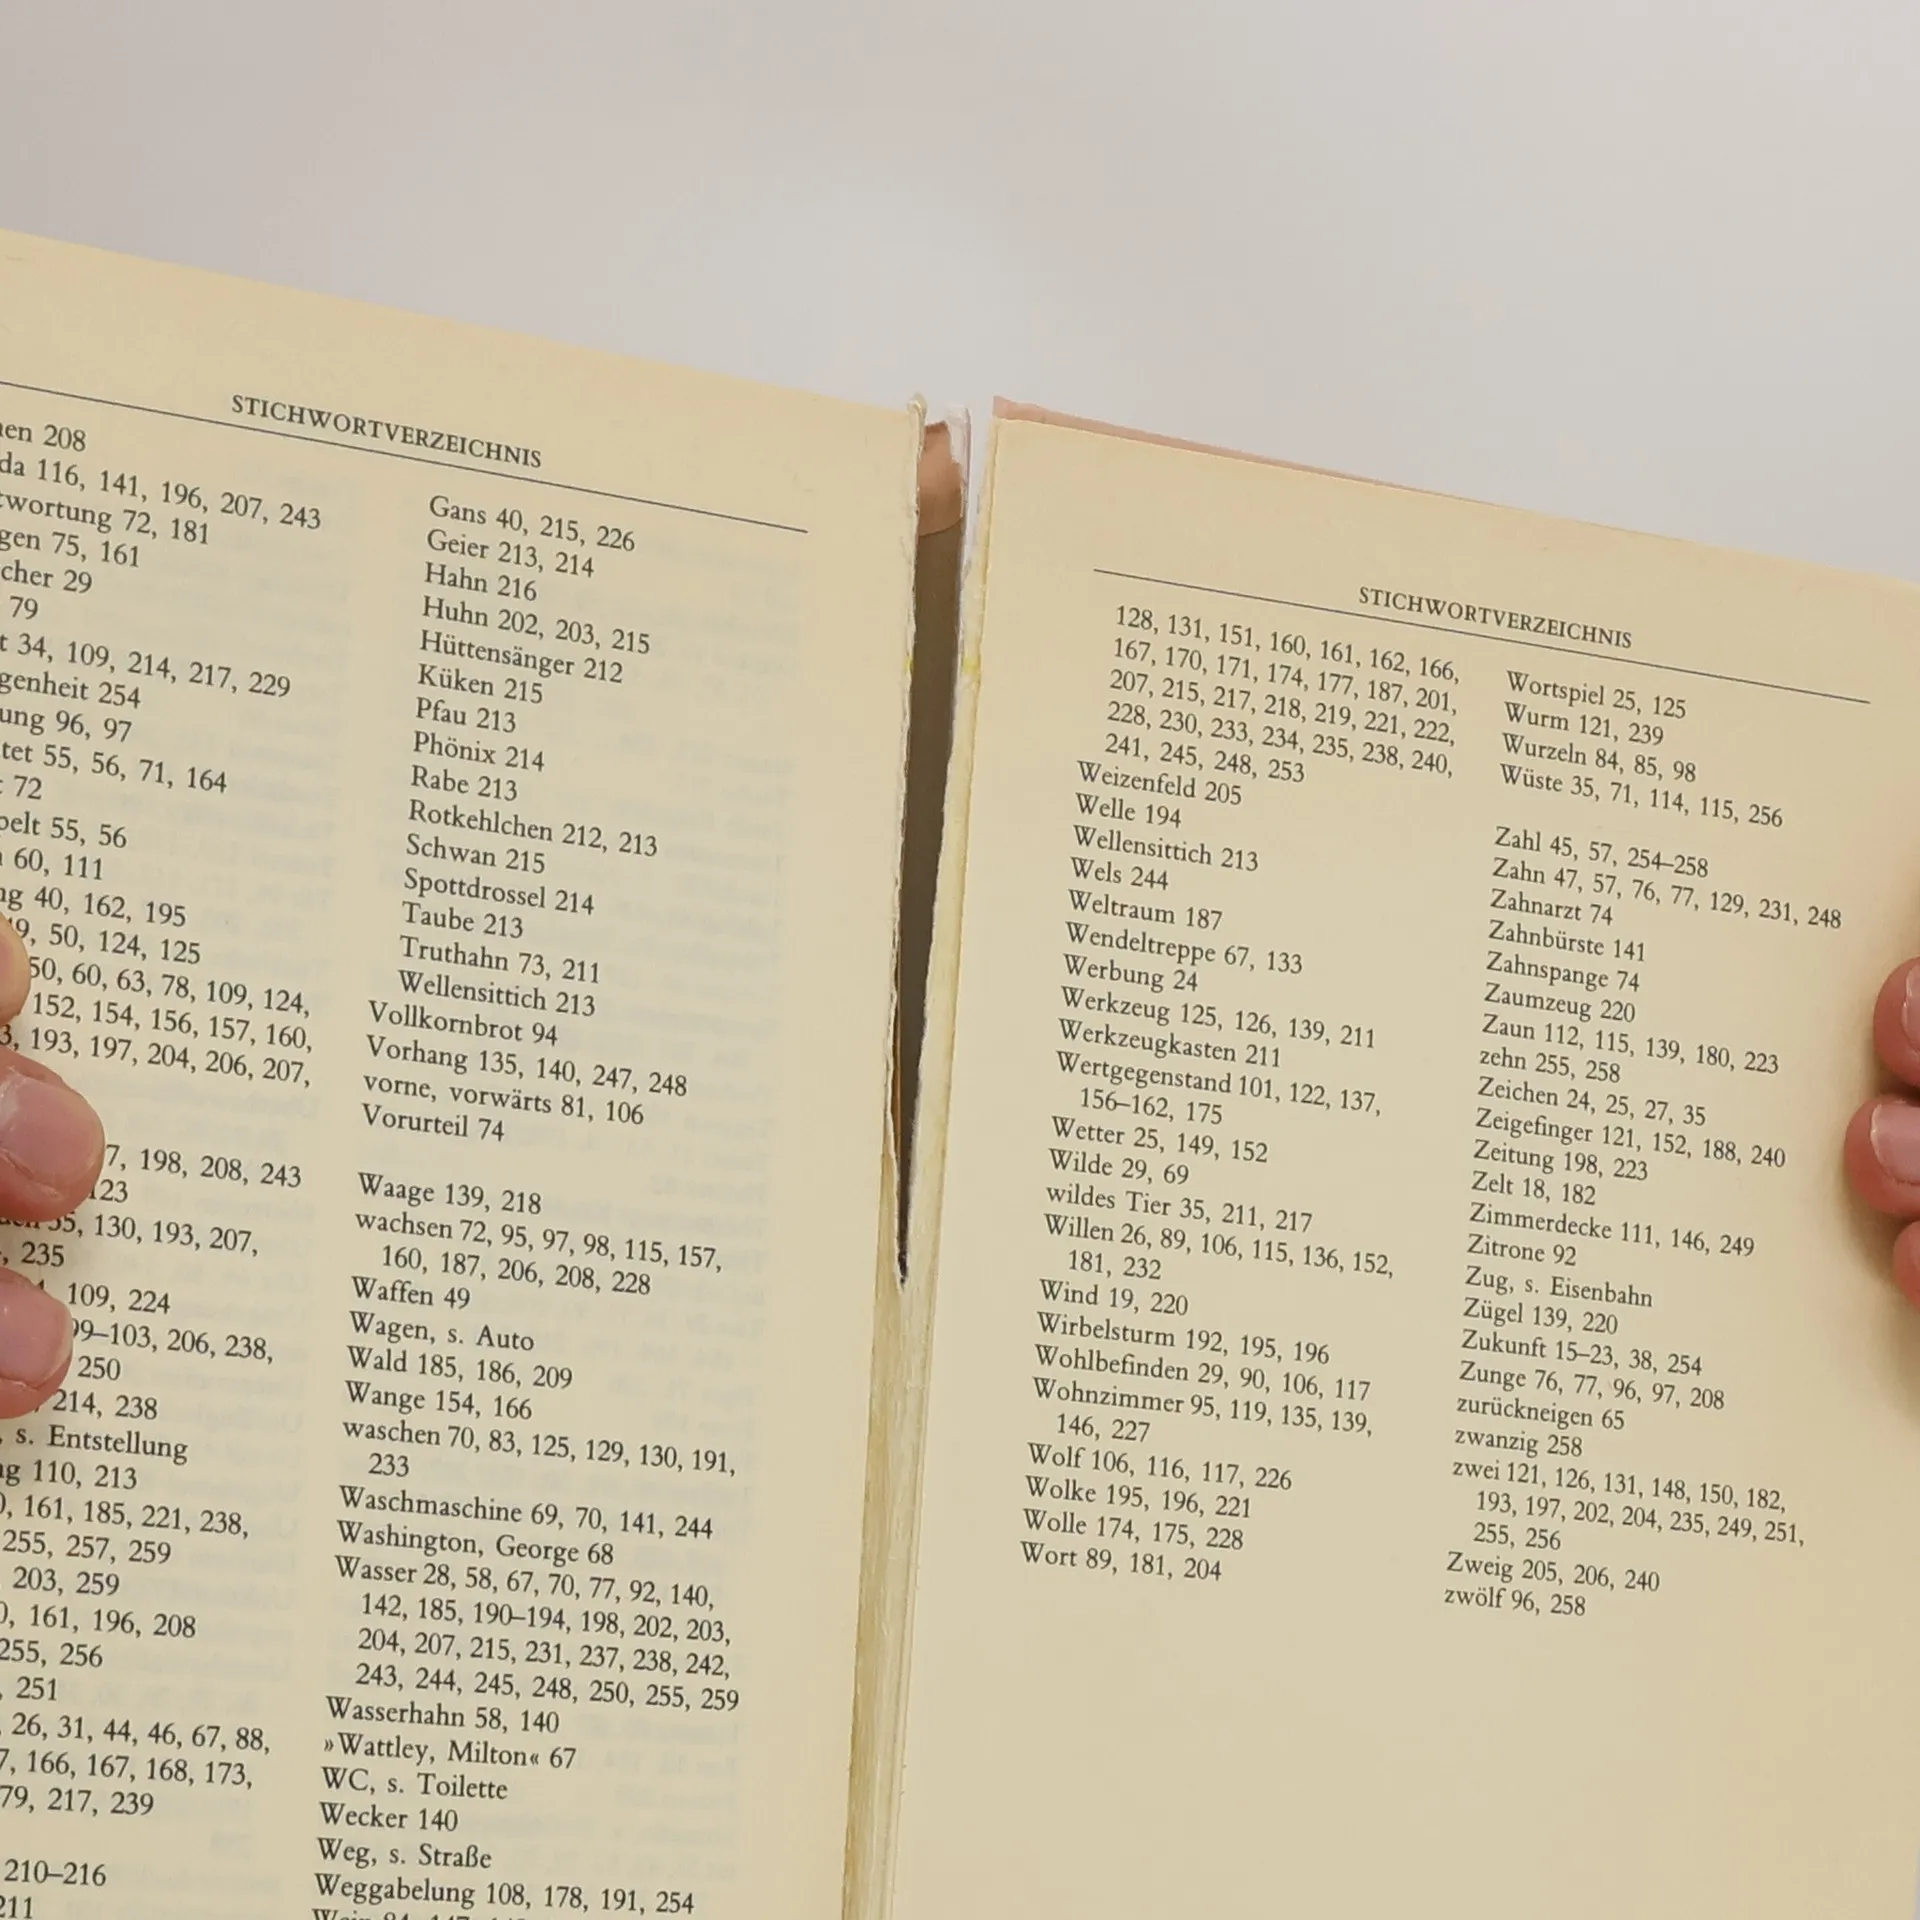 STICHWORTVERZEICHNIS
208
116, 141, 196, 207, 243
72, 181
75, 161
29
79
34, 109, 214, 217, 229
254
96, 97
55, 56, 71, 164
72
55, 56
60, 111
40, 162, 195
50, 124, 125
60, 63, 78, 109, 124,
152, 154, 156, 157, 160,
193, 197, 204, 206, 207,
198, 208, 243
130, 193, 207,
235
109, 224
206, 238,
250
214, 238
s. Entstellung
110, 213
161, 185, 221, 238,
255, 257, 259
203, 259
161, 196, 208
255, 256
251
26, 31, 44, 46, 67, 88,
166, 167, 168, 173,
217, 239
210–216
211
Gans 40, 215, 226
Geier 213, 214
Hahn 216
Huhn 202, 203, 215
Hüttensänger 212
Küken 215
Pfau 213
Phönix 214
Rabe 213
Rotkehlchen 212, 213
Schwan 215
Spottdrossel 214
Taube 213
Truthahn 73, 211
Wellensittich 213
Vollkornbrot 94
Vorhang 135, 140, 247, 248
vorne, vorwärts 81, 106
Vorurteil 74
Waage 139, 218
wachsen 72, 95, 97, 98, 115, 157,
160, 187, 206, 208, 228
Waffen 49
Wagen, s. Auto
Wald 185, 186, 209
Wange 154, 166
waschen 70, 83, 125, 129, 130, 191,
233
Waschmaschine 69, 70, 141, 244
Washington, George 68
Wasser 28, 58, 67, 70, 77, 92, 140,
142, 185, 190–194, 198, 202, 203,
204, 207, 215, 231, 237, 238, 242,
243, 244, 245, 248, 250, 255, 259
Wasserhahn 58, 140
»Wattley, Milton« 67
WC, s. Toilette
Wecker 140
Weg, s. Straße
Weggabelung 108, 178, 191, 254
STICHWORTVERZEICHNIS
128, 131, 151, 160, 161, 162, 166,
167, 170, 171, 174, 177, 187, 201,
207, 215, 217, 218, 219, 221, 222,
228, 230, 233, 234, 235, 238, 240,
241, 245, 248, 253
Weizenfeld 205
Welle 194
Wellensittich 213
Wels 244
Weltraum 187
Wendeltreppe 67, 133
Werbung 24
Werkzeug 125, 126, 139, 211
Werkzeugkasten 211
Wertgegenstand 101, 122, 137,
156–162, 175
Wetter 25, 149, 152
Wilde 29, 69
wildes Tier 35, 211, 217
Willen 26, 89, 106, 115, 136, 152,
181, 232
Wind 19, 220
Wirbelsturm 192, 195, 196
Wohlbefinden 29, 90, 106, 117
Wohnzimmer 95, 119, 135, 139,
146, 227
Wolf 106, 116, 117, 226
Wolke 195, 196, 221
Wolle 174, 175, 228
Wort 89, 181, 204
Wortspiel 25, 125
Wurm 121, 239
Wurzeln 84, 85, 98
Wüste 35, 71, 114, 115, 256
Zahl 45, 57, 254–258
Zahn 47, 57, 76, 77, 129, 231, 248
Zahnarzt 74
Zahnbürste 141
Zahnspange 74
Zaumzeug 220
Zaun 112, 115, 139, 180, 223
zehn 255, 258
Zeichen 24, 25, 27, 35
Zeigefinger 121, 152, 188, 240
Zeitung 198, 223
Zelt 18, 182
Zimmerdecke 111, 146, 249
Zitrone 92
Zug, s. Eisenbahn
Zügel 139, 220
Zukunft 15–23, 38, 254
Zunge 76, 77, 96, 97, 208
zurückneigen 65
zwanzig 258
zwei 121, 126, 131, 148, 150, 182,
193, 197, 202, 204, 235, 249, 251,
255, 256
Zweig 205, 206, 240
zwölf 96, 258